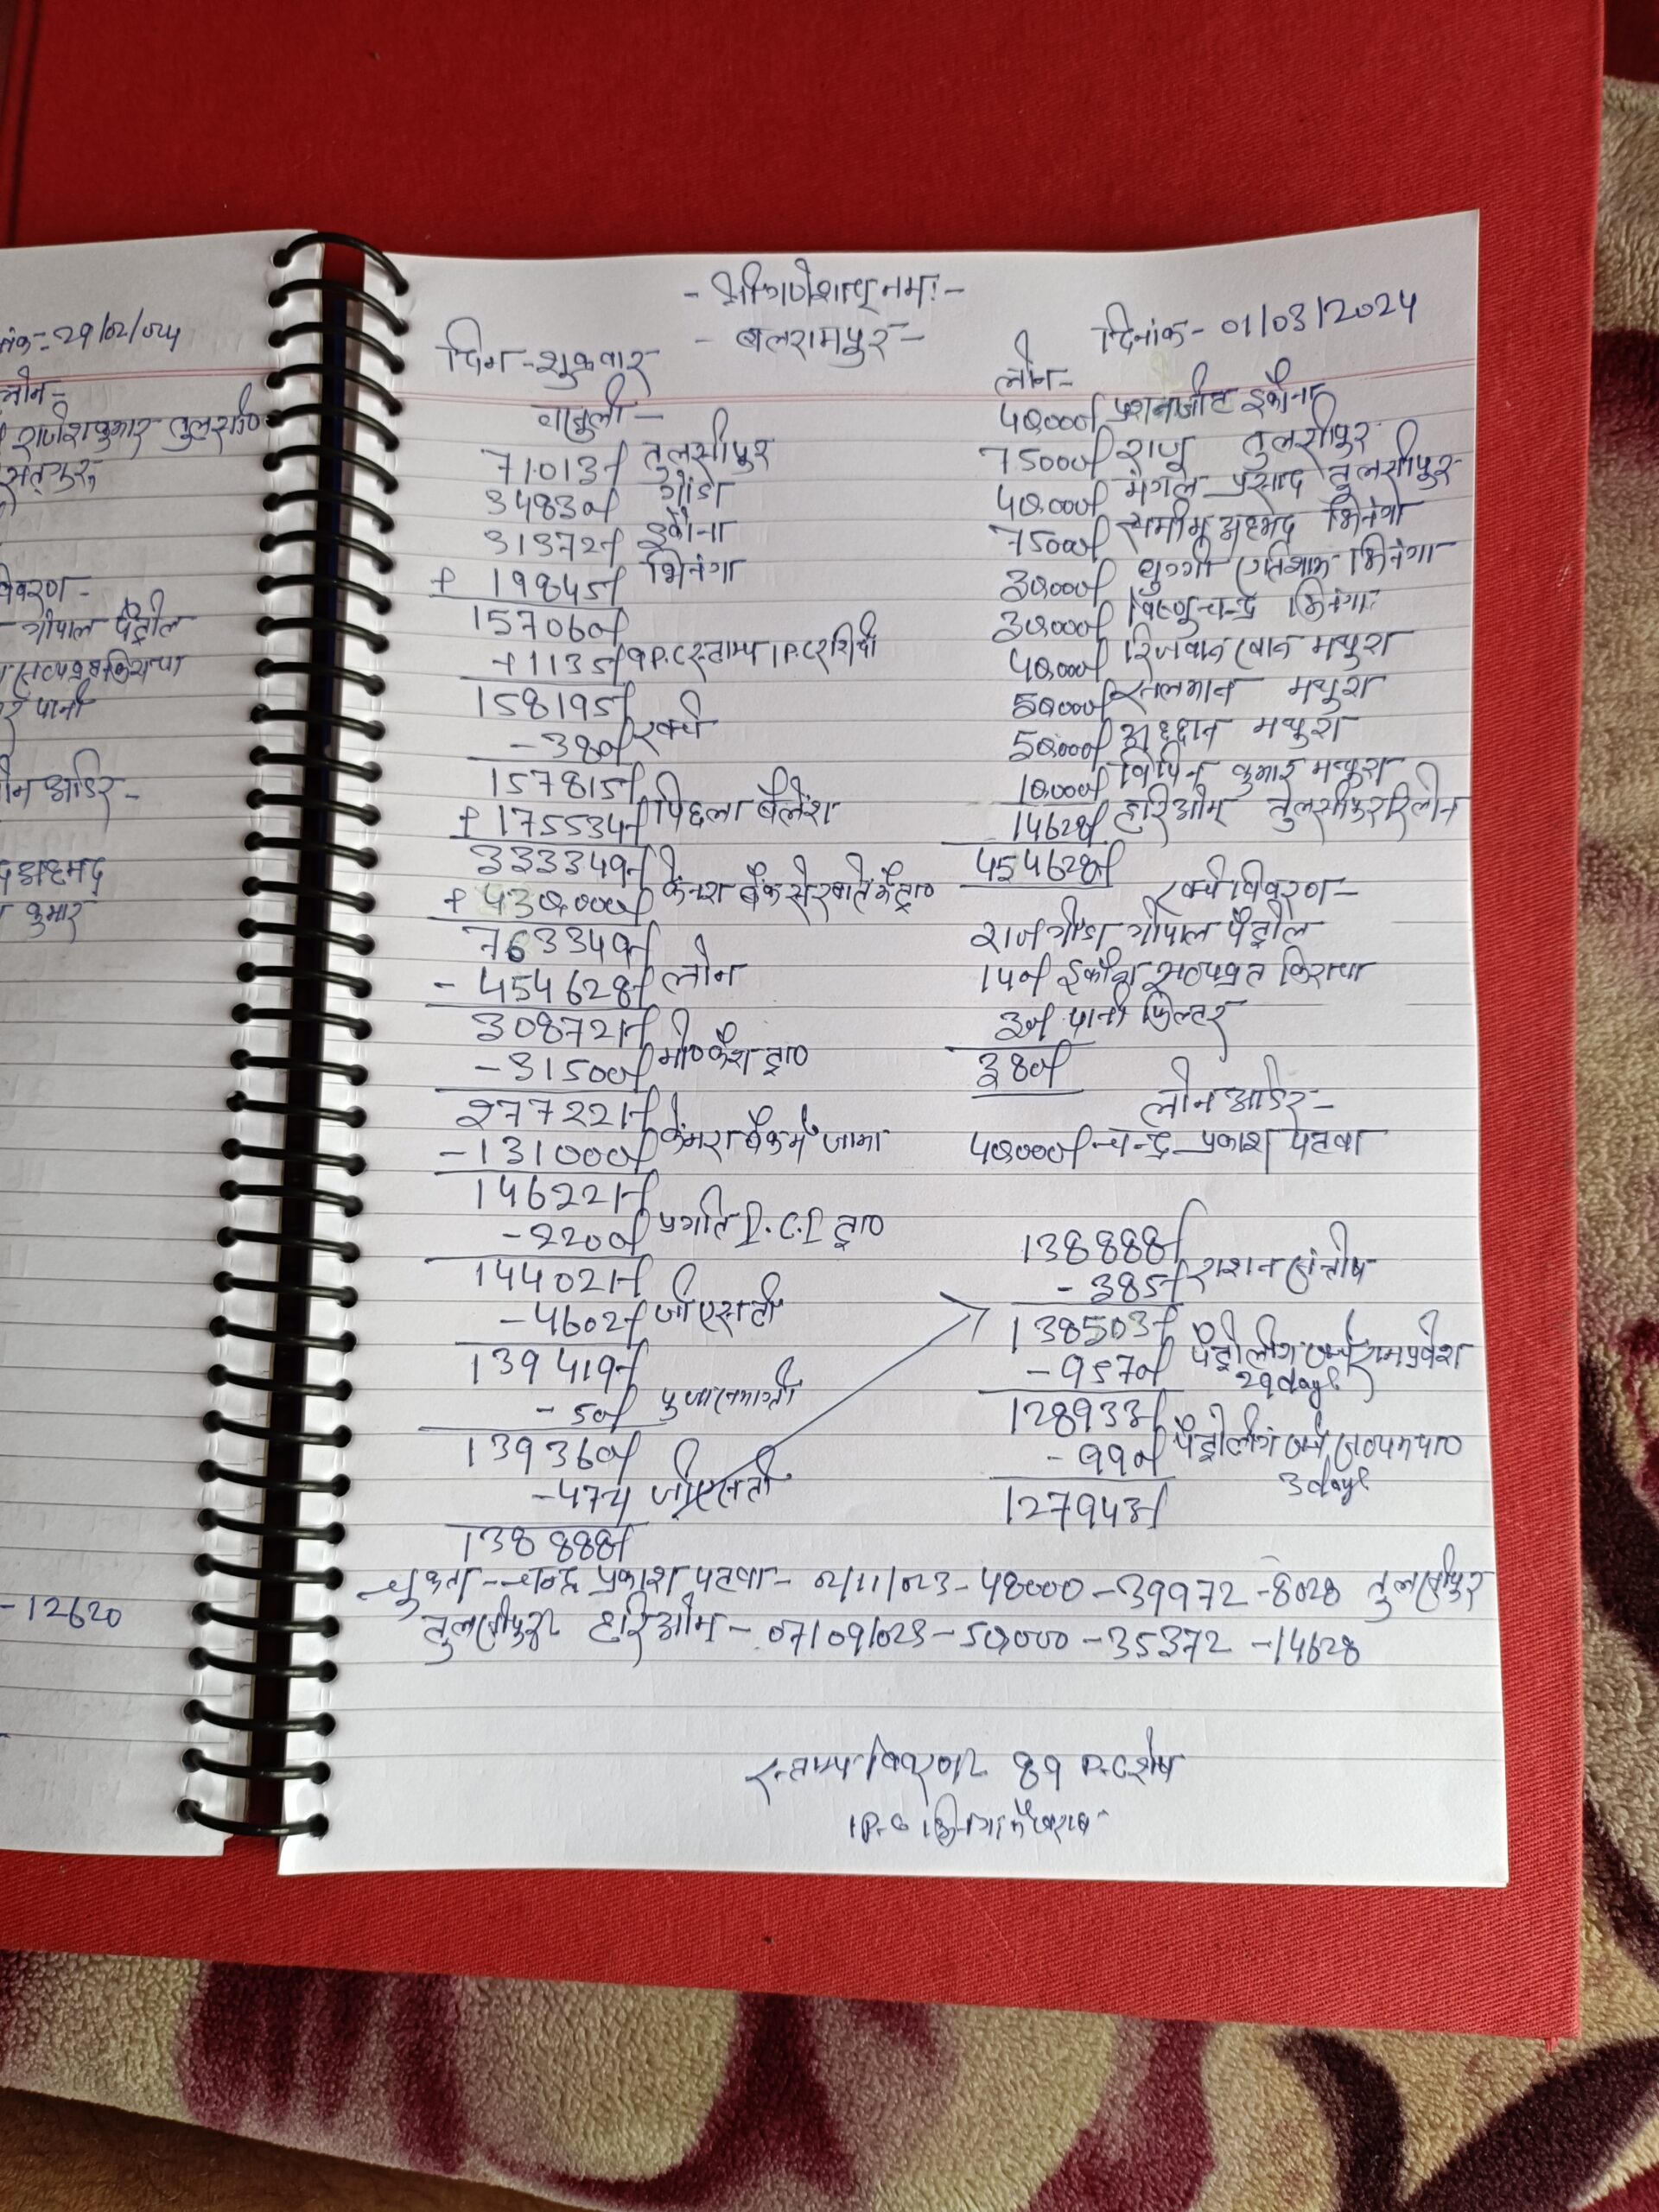 तंक:-29/02/024
लोन-
राजेशकुमार तुलसी०
सतगुरु
विवरण-
गोपाल पेट्रोल
पानी
लोन आर्डर-
अहमद
कुमार
-12620
-श्रीगणेशाय नमः-
- बलरामपुर -
दिन-शुक्रवार
दिनांक-01/03/2024
वासुली-
71013/ तुलसीपुर
34830/ गोंडा
31372/ इकौना
+ 19845/ भिनंगा
157060/
+1135/ 9P.C स्ताम्प 1P.C रसीदी
158195/
-380/ खर्च
157815/
+175534/ पिछला बैलेंश
333349/
+430000/ केनरा बैंक से खाते के द्वा०
763349/
-454628/ लोन
308721/
-31500/ मो० कैश द्वा०
277221/
-131000/ केनरा बैंक में जामा
146221/
-2200/ प्रगति I.C.I द्वा०
144021/
-4602/ जीएसटी
139419/
-50/
139360/
-474 जीएसटी
138888/
लोन-
40000/ प्रशनजीत इकौना
75000/ राजू तुलसीपुर
40000/ मंगल प्रसाद तुलसीपुर
75000/ समीम अहमद भिनंगा
30000/ भिनंगा
30000/ विष्णुचन्द्र भिनंगा
40000/ रिजवान खान मथुरा
50000/ सलमान मथुरा
50000/ मथुरा
10000/ विपिन कुमार मथुरा
14628/ हरिओम तुलसीपुर रिलोन
454628/
खर्च विवरण-
राज गोंडा गोपाल पेट्रोल
इकौना सत्यव्रत किराया
30/ पानी फिल्टर
380/
लोन आर्डर-
40000/ चन्द्र प्रकाश पटवा
138888/
-385/ राशन संतोष
138503/
-9570/ पेट्रोलींग खर्च रामप्रवेश
29 days
128933/
-990/ पेट्रोलींग खर्च
3 days
127943/
चुकता-चन्द्र प्रकाश पटवा-02/11/023-48000-39972-8028 तुलसीपुर
तुलसीपुर हरिओम-07/09/023-50000-35372-14628
स्ताम्प विवरण 89 P.C शेष
1P.C भिनंगा में खराब